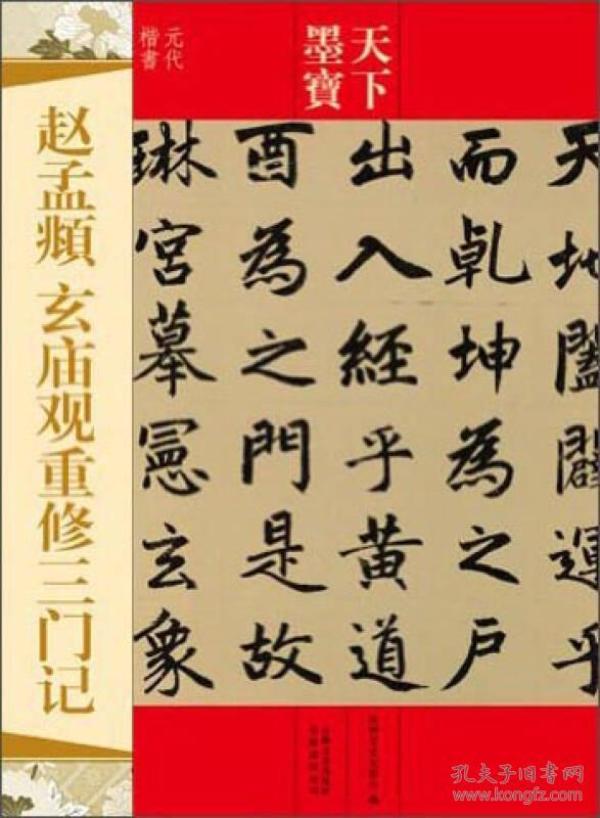 天下
墨寶
元代
楷書
赵孟頫 玄庙观重修三门记
天地闔闢運乎
而乹坤為之戶
出入經乎黃道
酉為之門是故
琳宮摹憲玄象
孔夫子旧书网
www.kongfz.com